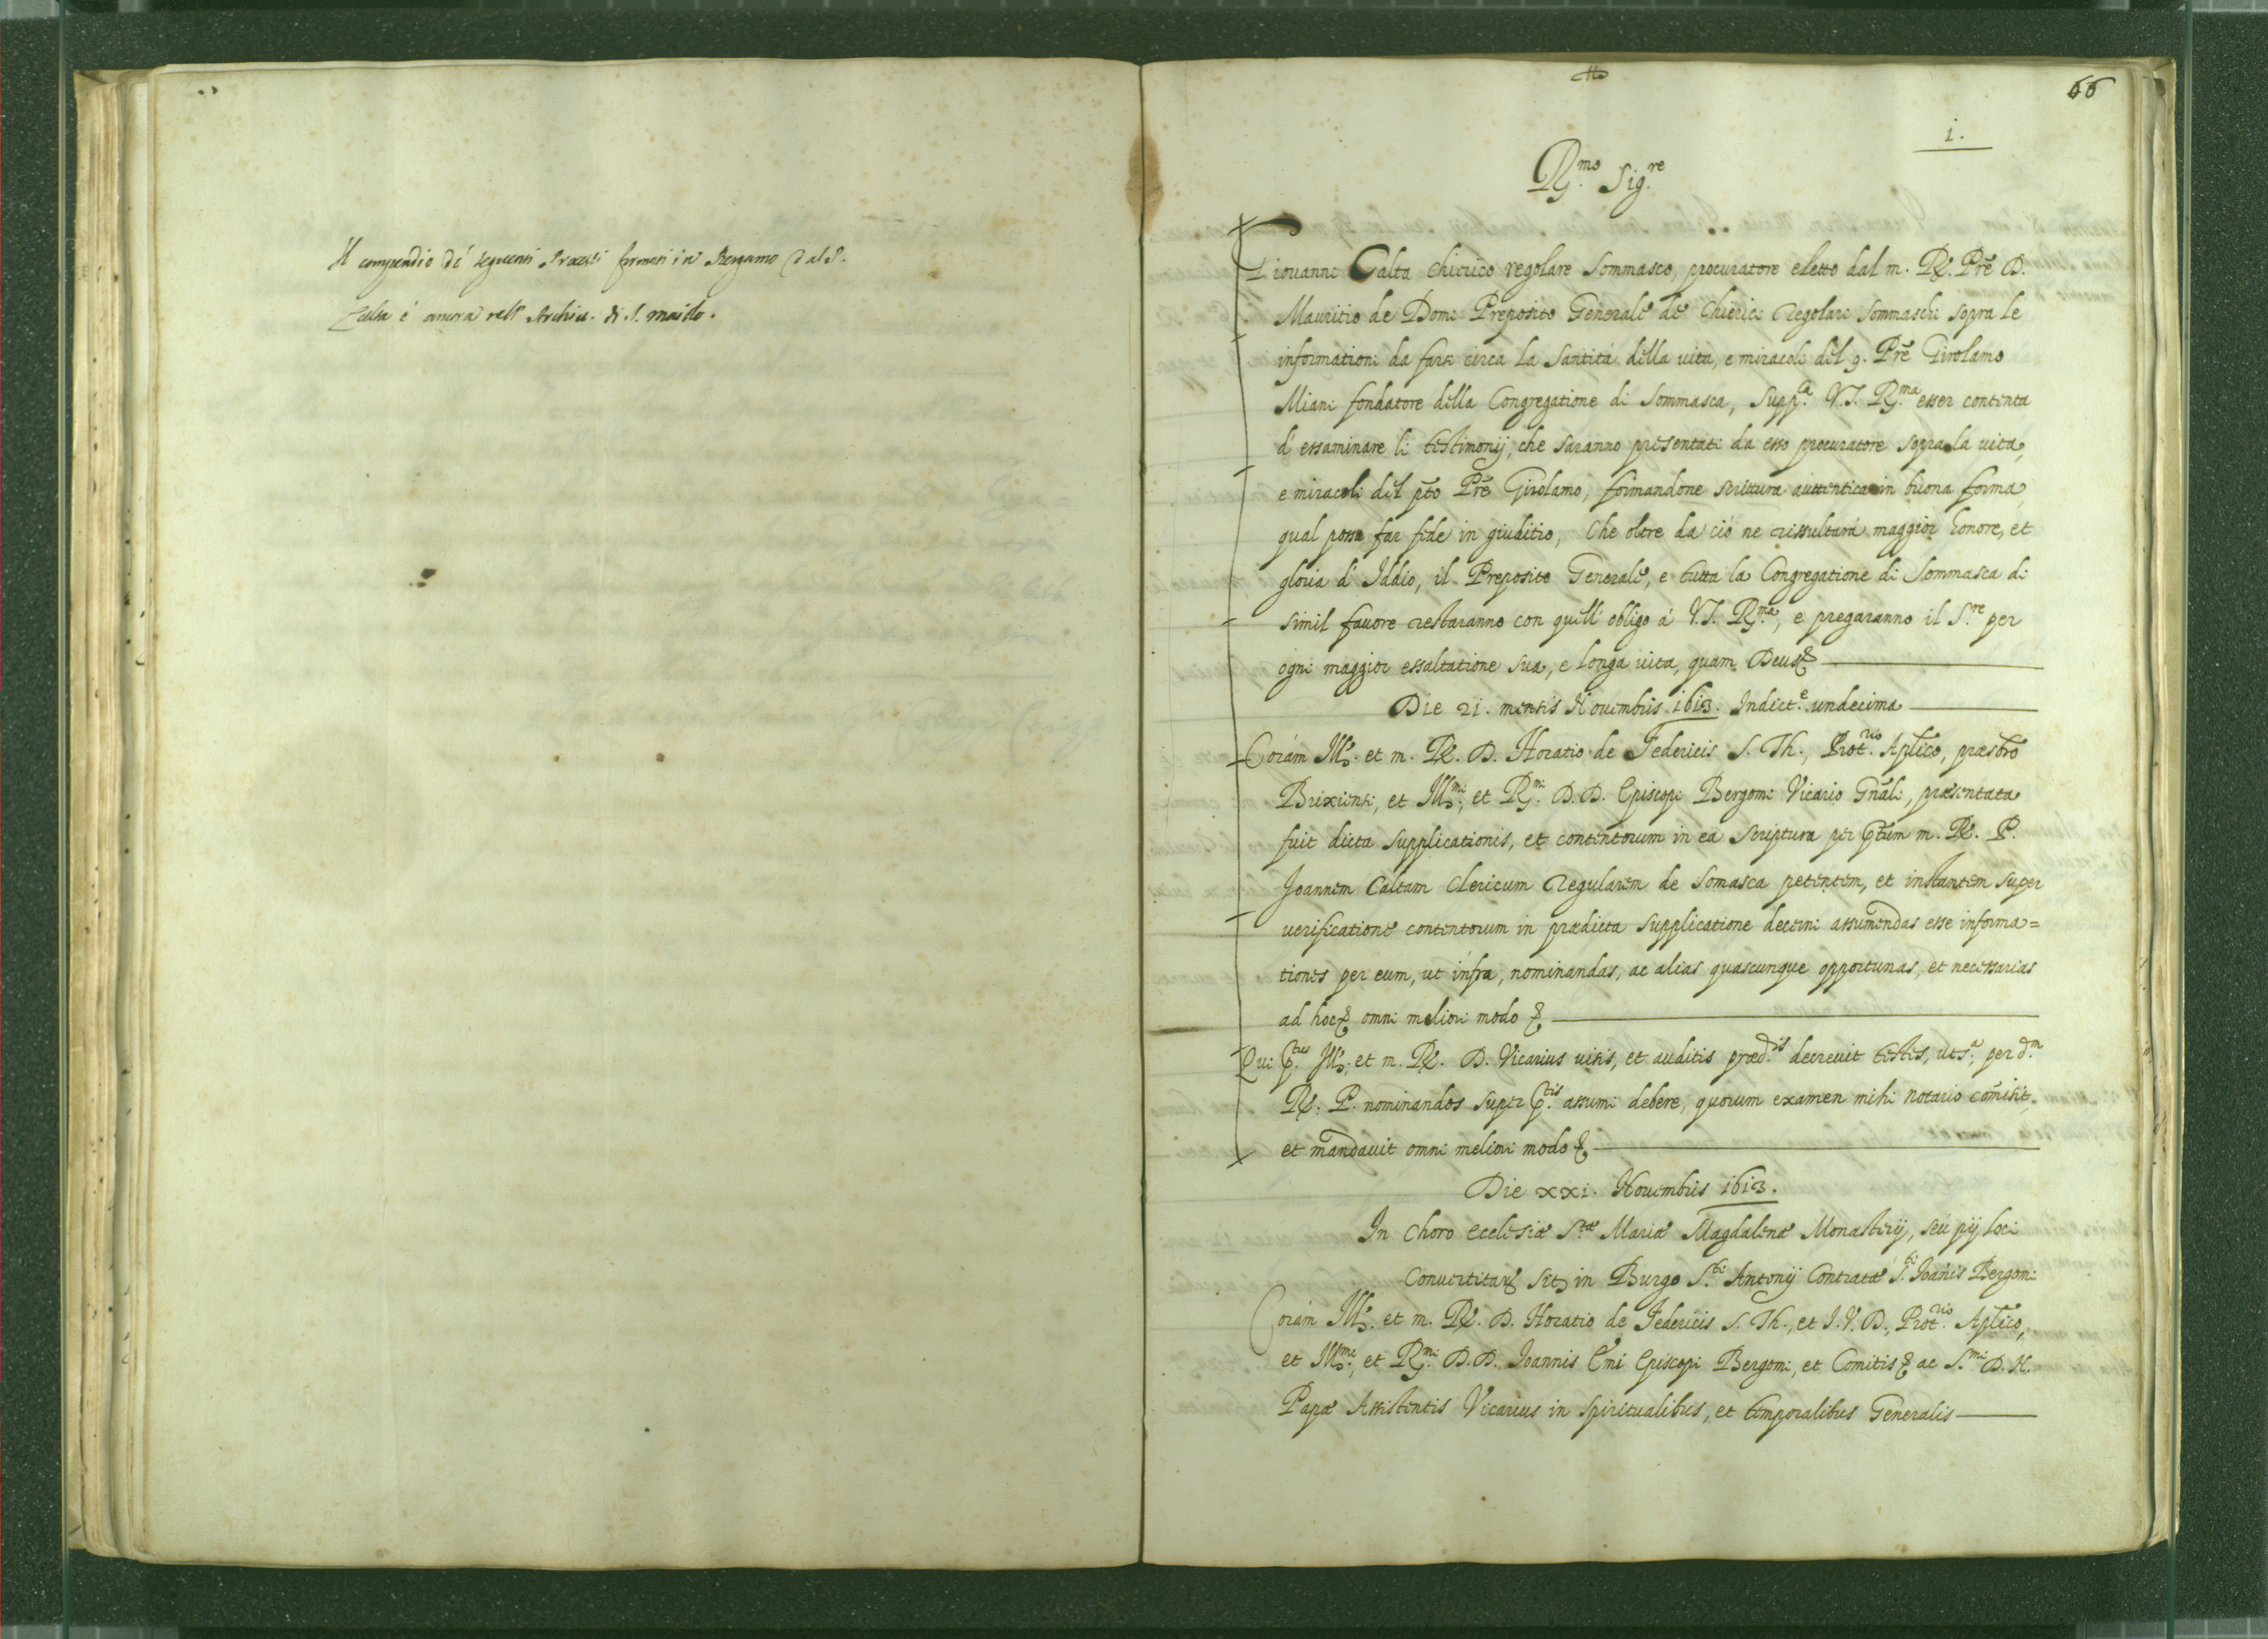 Il compendio de' seguenti Processi formati in Bergamo dal P.
Calta è ancora nell' Archiu. di S. maiolo.
66
1.
R.mo Sig.re
Giouanni Calta chierico regolare Sommasco, procuratore eletto dal m. R. Prē D.
Mauritio de Domi Preposito Generale de Chierici Regolari Sommaschi sopra le
informationi da farsi circa la santità della uita, e miracoli del q. Prē Girolamo
Miani fondatore della Congregatione di Sommasca, supp.ca V.S. R.ma esser contenta
d'essaminare li testimonij, che saranno presentati da esso procuratore sopra la uita,
e miracoli del pto Prē Girolamo, formandone scrittura auttentica in buona forma,
qual possa far fede in giuditio, Che oltre da ciò ne rissultarà maggior honore, et
gloria d'Iddio, il Preposito Generale, e tutta la Congregatione di Sommasca di
simil fauore restaranno con quell' obligo à V.S. R.ma, e pregaranno il S.re per
ogni maggior essaltatione sua, e longa uita, quam Deus &
Die 21. mensis Nouembris 1613. Indict.e undecima
Coràm Ill. et m. R. D. Horatio de Federicis S. Th., Prot.rio Aplico, præsbro
Brixiensi, et Ill.mi, et R.mi D.D. Episcopi Bergomi Vicario Gn̄ali, præsentata
fuit dicta supplicationis, et contentorum in ea scriptura per ptum m. R. P.
Joannem Caltam Clericum Regularem de Somasca petentem, et instantem super
uerificatione contentorum in prædicta supplicatione decerni assumendas esse informa=
tiones per eum, ut infra, nominandas, ac alias quascunque opportunas, et necessarias
ad hoc & omni meliori modo &
Qui p.tus Ill. et m. R. D. Vicarius uisis, et auditis præd.is decreuit testes, ut s.a per d.m
R. P. nominandos super p.tis assumi debere, quorum examen mihi notario com̄isit,
et mandauit omni meliori modo &
Die xxi. Nouembris 1613.
In Choro ecclesiæ S.tæ Mariæ Magdalenæ Monasterij, seu pij loci
Conuertitar. sit. in Burgo S.ti Antonij Contratæ S.ti Joānis Bergomi
Coràm Ill. et m. R. D. Horatio de Federicis S. Th., et I.V.D., Prot.rio Aplico,
et Ill.mi, et R.mi D.D. Joannis Emi Episcopi Bergomi, et Comitis & ac S.mi D.N.
Papæ Assistentis Vicarius in spiritualibus, et temporalibus Generalis